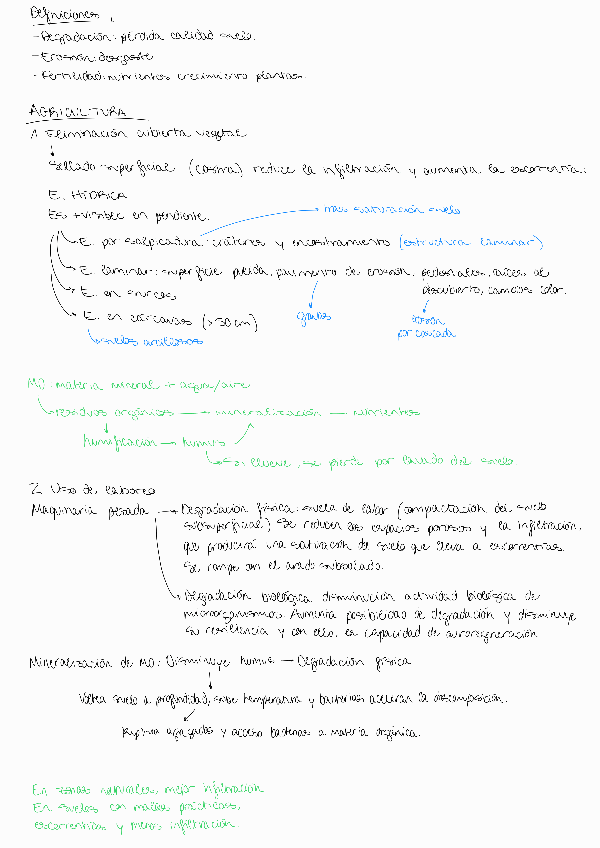 Definiciones
- Degradación: pérdida calidad suelo.
- Erosión: desgaste
- Fertilidad: nutrientes crecimiento plantas.
AGRICULTURA
1. Eliminación cubierta vegetal
Sellado superficial (costra) reduce la infiltración y aumenta la escorrentía.
E. HÍDRICA
Es + visible en pendiente.
más saturación suelo
E. por salpicadura: cráteres y encostramiento (estructura laminar)
E. laminar: superficie pulida, pavimento de erosión, pedestales, raíces al
descubierto, cambios color.
E. en surcos
gravas
E. en cárcavas (>30 cm)
erosión
por coricada
suelos arcillosos
MO: materia mineral + agua/aire
residuos orgánicos → mineralización — nutrientes
humificación → humus
Si llueve, se pierde por lavado del suelo
2. Uso de labores
Maquinaria pesada → Degradación física: suela de labor (compactación del suelo
subsuperficial) Se reducen los espacios porosos y la infiltración,
que producirá una saturación de suelo que lleva a escorrentías.
Se rompe con el arado subsolado.
Degradación biológica: disminución actividad biológica de
microorganismos. Aumenta posibilidad de degradación y disminuye
su resiliencia y con ello, la capacidad de autoregeneración.
Mineralización de MO: Disminuye humus — Degradación física
Voltea suelo a profundidad, sube temperatura y bacterias aceleran la descomposición.
Ruptura agregados y acceso bacterias a materia orgánica.
En zonas naturales, mejor infiltración
En suelos con malas prácticas,
escorrentías y menos infiltración.